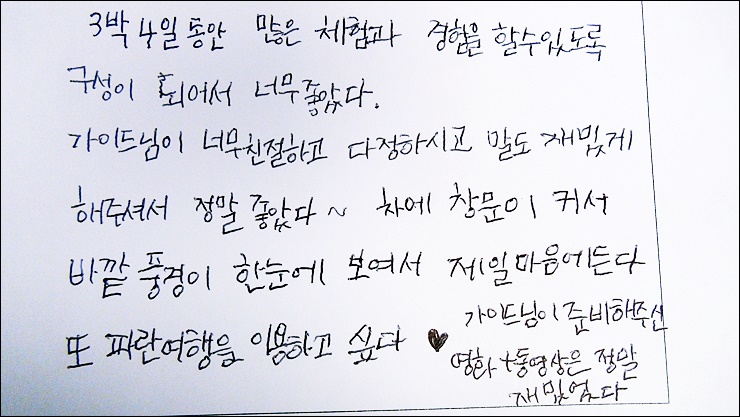 3박 4일 동안 많은 체험과 경험을 할수있도록
구성이 되어서 너무좋았다.
가이드님이 너무친절하고 다정하시고 말도 재밌게
해주셔서 정말 좋았다~ 차에 창문이 커서
바깥 풍경이 한눈에 보여서 제일마음에든다
또 파란여행을 이용하고 싶다 ♥
가이드님이 준비해주신
영화+동영상은 정말
재밌었다